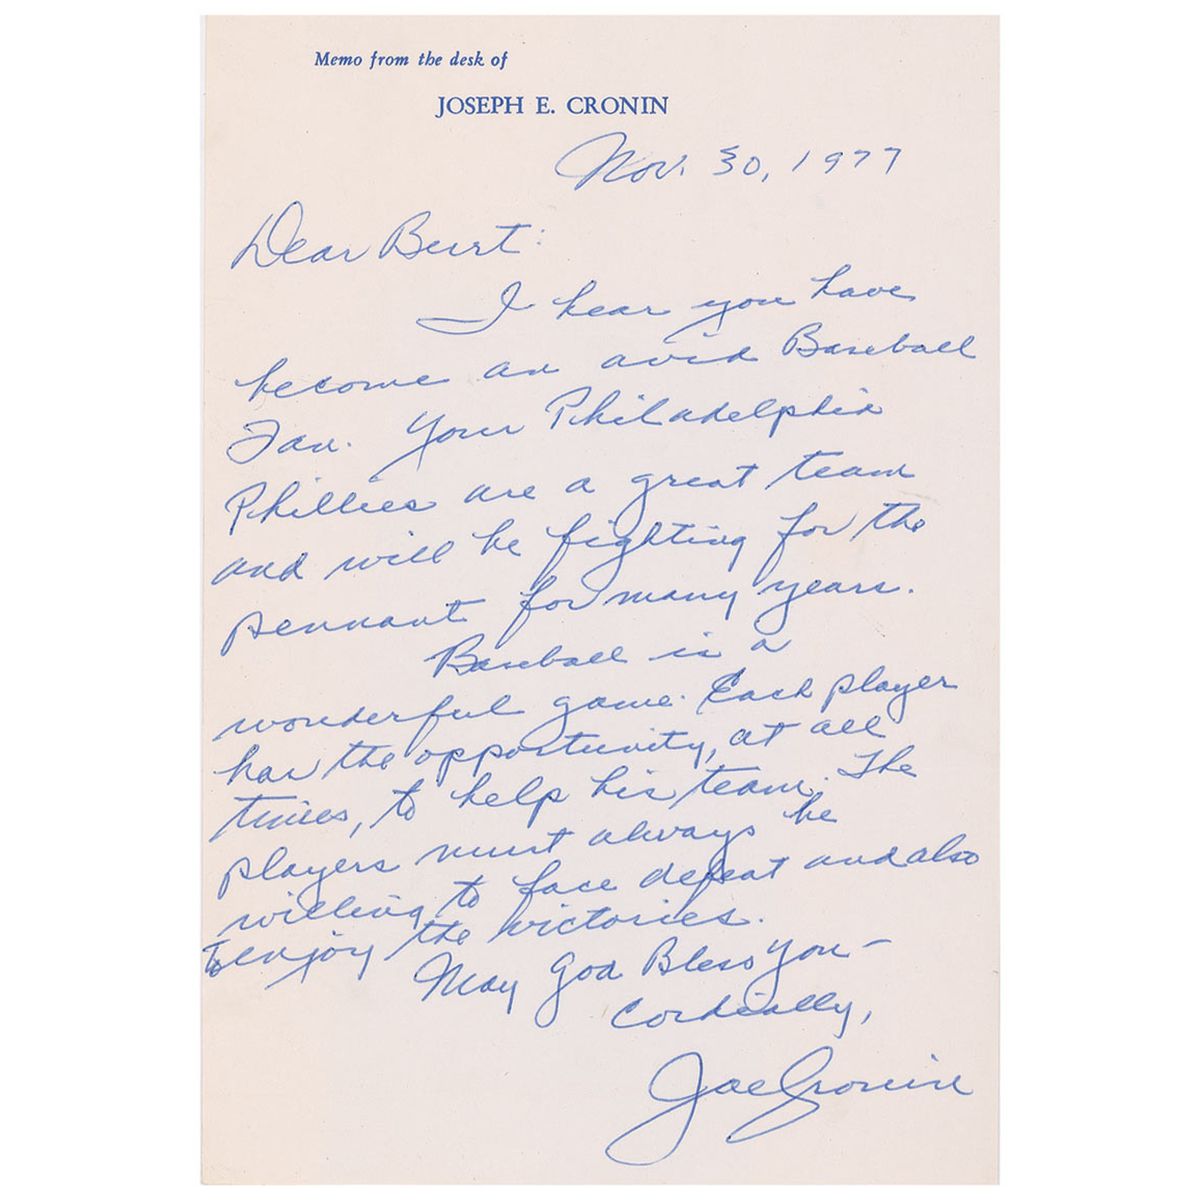 Memo from the desk of
JOSEPH E. CRONIN
Nov. 30, 1977
Dear Burt:
I hear you have
become an avid Baseball
Fan. Your Philadelphia
Phillies are a great team
and will be fighting for the
pennant for many years.
Baseball is a
wonderful game. Each player
has the opportunity, at all
times, to help his team. The
players must always be
willing to face defeat and also
to enjoy the victories.
May God Bless You –
Cordially,
Joe Cronin